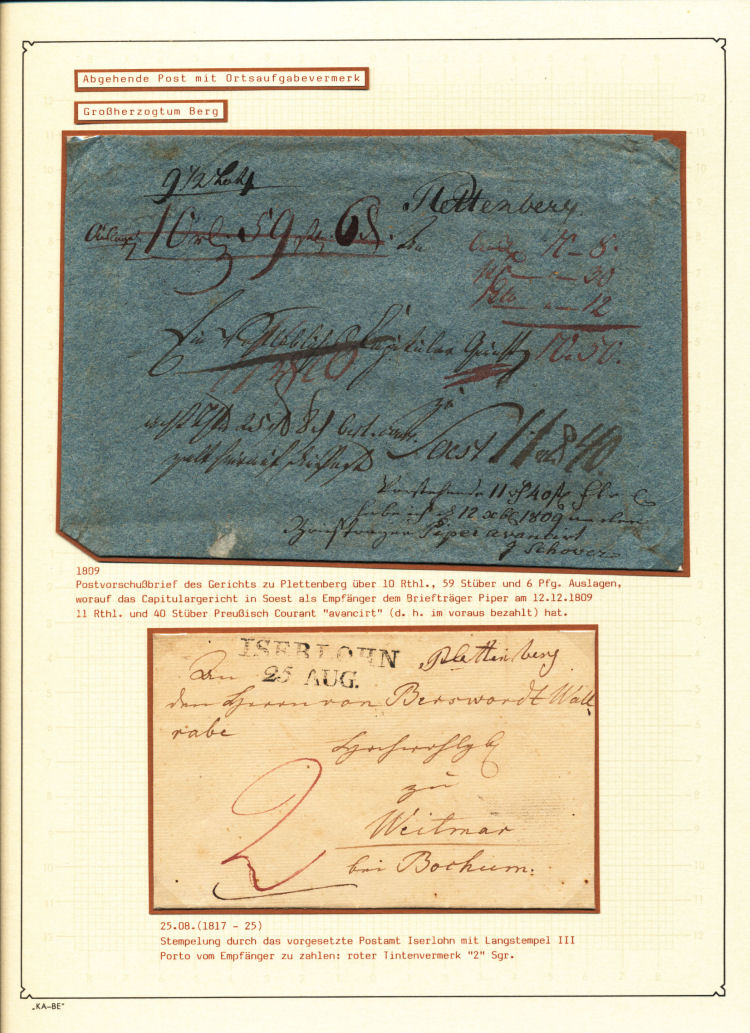 Abgehende Post mit Ortsaufgabevermerk
Großherzogtum Berg
9 1/2 Loth
Plettenberg.
Auslagen 10 rl. 59 stbr 6 d.
An
10 - 8.
30
12
10. 50.
Ein
Capitular Gericht
zu
Soest 11 40
Vorstehende 11 rf 40
habe ich 12 xbr 1809
Briefträger Piper avancirt
Schover
1809
Postvorschußbrief des Gerichts zu Plettenberg über 10 Rthl., 59 Stüber und 6 Pfg. Auslagen,
worauf das Capitulargericht in Soest als Empfänger dem Briefträger Piper am 12.12.1809
11 Rthl. und 40 Stüber Preußisch Courant "avancirt" (d. h. im voraus bezahlt) hat.
ISERLOHN
25 AUG.
Plettenberg
An
den Herrn von Berswordt Wall
rabe
Hochwohlgb
zu
Weitmar
bei Bochum.
2
25.08.(1817 - 25)
Stempelung durch das vorgesetzte Postamt Iserlohn mit Langstempel III
Porto vom Empfänger zu zahlen: roter Tintenvermerk "2" Sgr.
„KA-BE"